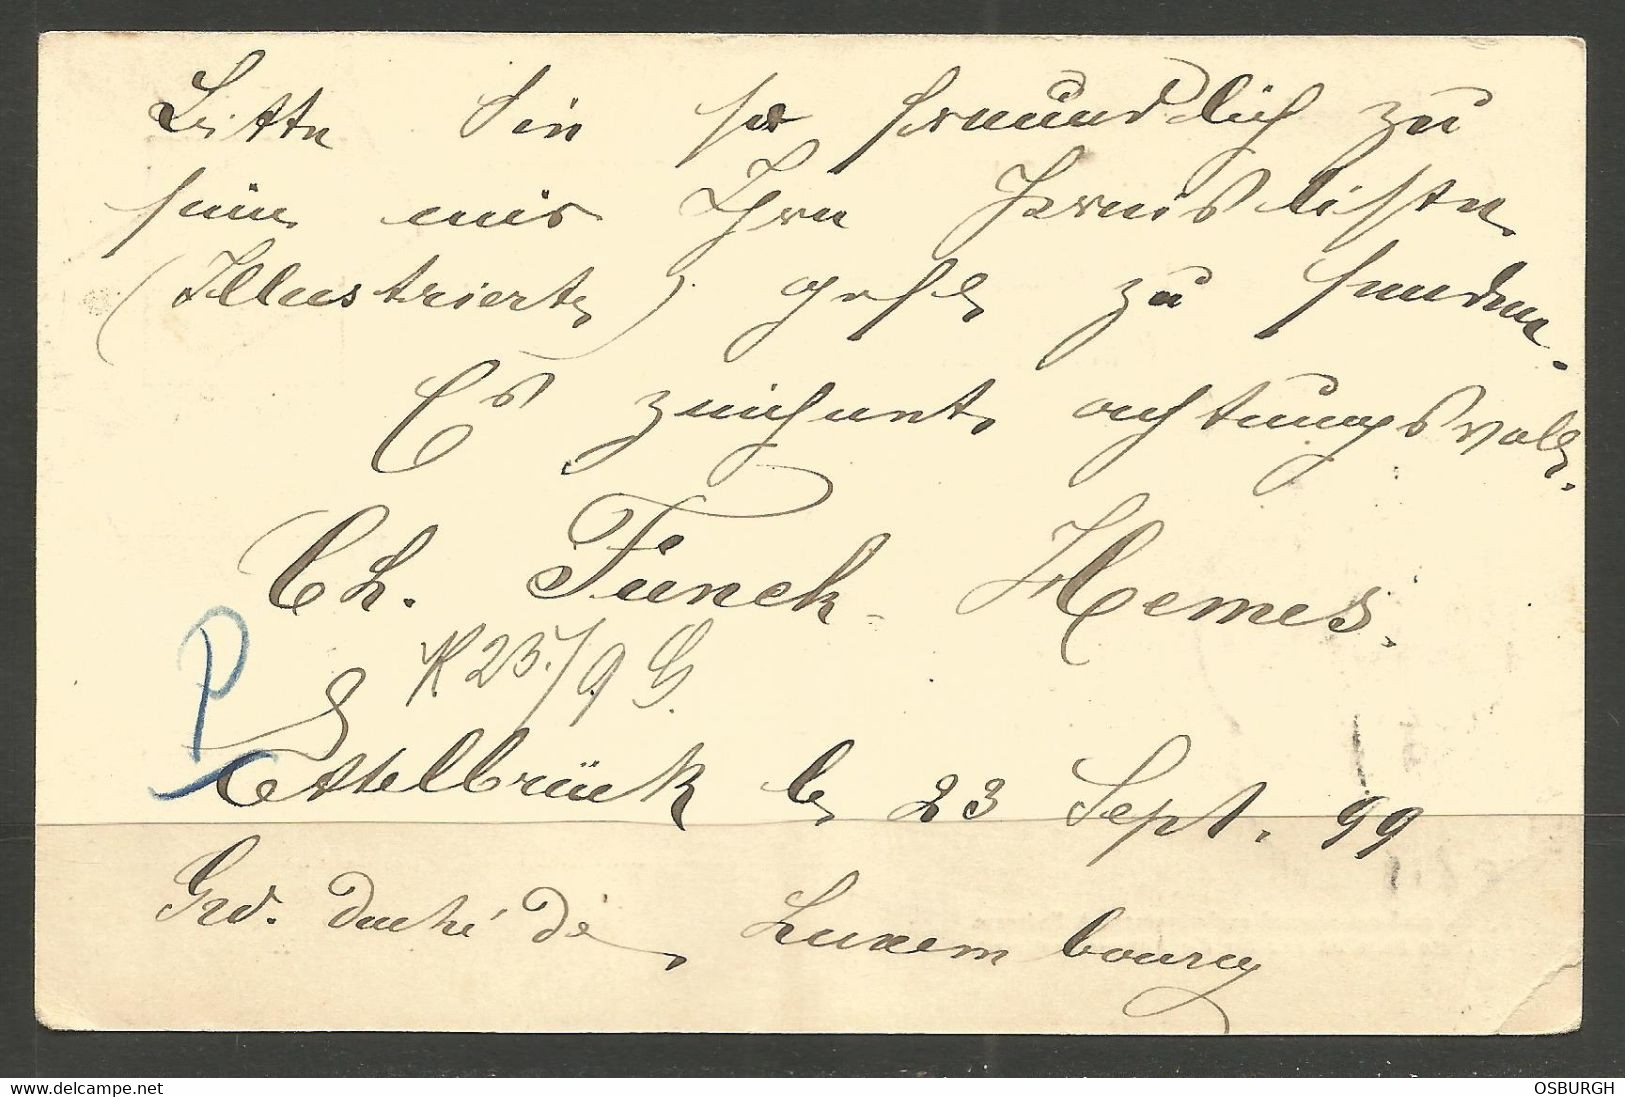 Bitte Sie so freundlich zu
sein mir Ihre Preisliste
(Illustrierte) gefl. zu senden.
Es zeichnet achtungsvoll.
Ch. Funck-Hemes.
P
K 25/9 G.
Ettelbrück le 23 Sept. 99
Grd. Duché de Luxembourg
delcampe.net
OSBURGH